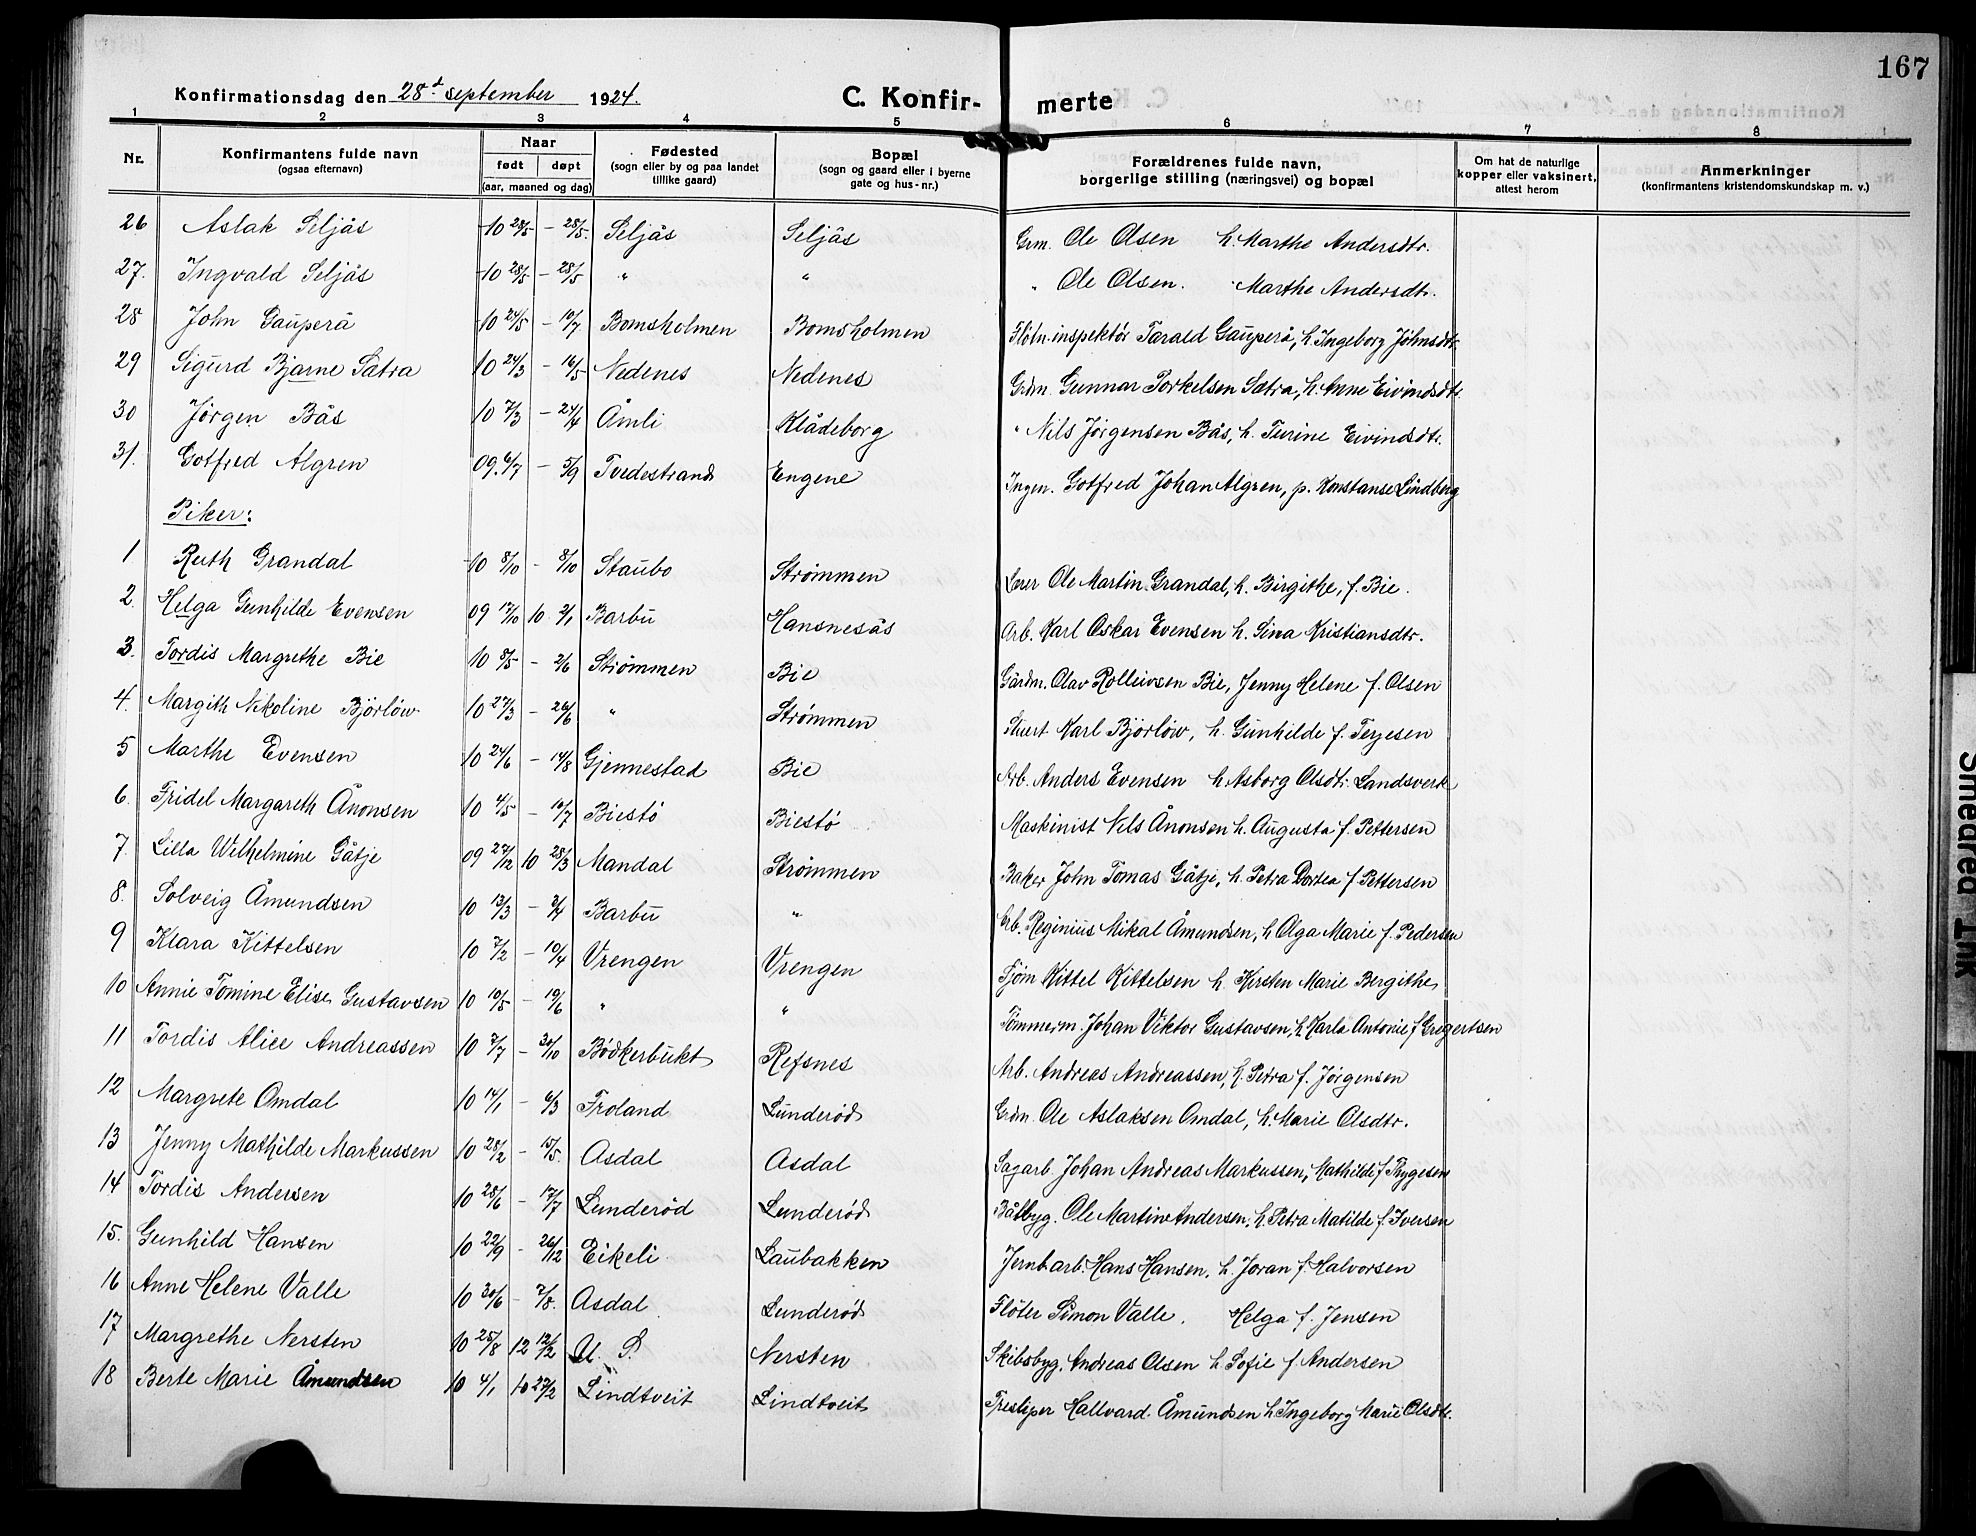 167
Konfirmationsdag den 28d september 1924.
C. Konfir- merte
1 2 3 4 5 6 7 8
Nr. Konfirmantens fulde navn (ogsaa efternavn) Naar født døpt (aar, maaned og dag) Fødested (sogn eller by og paa landet tillike gaard) Bopæl (sogn og gaard eller i byerne gate og hus-nr.) Forældrenes fulde navn, borgerlige stilling (næringsvei) og bopæl Om hat de naturlige kopper eller vaksinert, attest herom Anmerkninger (konfirmantens kristendomskundskap m. v.)
26 Aslak Seljås 10 28/5 - 28/5. Seljås Seljås Grm. Ole Olsen h. Marthe Andersdtr.
27. Ingvald Seljås 10 28/5 - 28/5 " " " Ole Olsen. Marthe Andersdtr.
28 John Gauperå 10 24/5 - 10/7 Bomsholmen Bomsholmen Flötn.inspektör Tarald Gauperå, h. Ingeborg Johnsdtr.
29 Sigurd Bjarne Sætra 10 24/3 - 16/5 Nedenes Nedenes Grdm. Gunnar Torkelsen Sætra, h. Anne Eivindsdtr.
30 Jørgen Bås 10 7/3 - 24/4 Åmli Klådeborg " Nils Jørgensen Bås, h. Turine Eivindsdtr.
31. Gotfred Algren 09. 6/7 - 5/9 Tvedestrand Engene Ingen. Gotfred Johan Algren, p. Konstanse Lindberg
Piker:
1 Ruth Grandal 10 8/10 - 8/10 Staubo Strømmen Lærer Ole Martin Grandal, h. Birgithe, f. Bie.
2. Helga Gunhilde Evensen 09 17/10 10 2/1 Barbu Hansnesås Arb. Karl Oskar Evensen h. Sina Kristiansdtr.
3. Tordis Margrethe Bie 10 8/5 - 2/6 Strømmen Bie Gårdm. Olav Rolleivsen Bie, Jenny Helene f. Olsen
4. Margith Nikoline Björlöw 10 27/3 - 26/6 " Strømmen Stuert Karl Björlöw, h. Gunhilde f. Terjesen
5 Marthe Evensen 10 24/6 - 14/8 Gjennestad Bie Arb. Anders Evensen h. Asborg Olsdtr. Landsverk
6. Fridel Margareth Ånonsen 10 4/5 - 10/7 Biestö Biestö Maskinist Nils Ånonsen h. Augusta f. Pettersen
7. Lilla Wilhelmine Gåtje 09 27/12 10 28/3 Mandal Strømmen Baker John Tomas Gåtje, h. Petra Dortea f. Pettersen
8. Solveig Åmundsen 10 13/3 - 3/4 Barbu " Arb. Reginius Mikal Åmundsen, h. Olga Marie f. Pedersen
9 Klara Kittelsen 10 7/2 - 10/4 Vrengen Vrengen Tjöm Kittel Kittelsen h. Kirsten Marie Bergithe,
10 Annie Tomine Elise Gustavsen 10 10/5 - 19/6 " " Tömmerm. Johan Viktor Gustavsen, h. Karla Antonie f Gregertsen
11 Tordis Alice Andreassen 10 7/7 - 30/10 Bödkerbukt Refsnes Arb. Andreas Andreassen, h. Petra f. Jørgensen
12 Margrete Omdal 10 14/1 - 6/3 Froland Lunderöd Grdm. Ole Aslaksen Omdal, h. Marie Olsdtr.
13 Jenny Mathilde Markussen 10 28/2 - 15/5. Asdal Asdal Sagarb. Johan Andreas Markussen, Mathilde f. Thygesen
14 Tordis Andersen 10 28/6 - 17/7 Lunderød Lunderød Båtbyg. Ole Martin Andersen, h. Petra Matilde f. Iversen
15. Gunhild Hansen 10 22/9 - 26/12 Eikeli Laubakken Jernb.arb. Hans Hansen, h. Joran f. Halvorsen
16 Anne Helene Valle 10 30/6 - 7/8. Asdal Lunderød Flöter Simon Valle. Helga f. Jensen
17 Margrethe Nersten 10 25/8 12 12/2 U. S. Nersten Skibsbyg. Andreas Olsen h. Sofie f. Andersen
18 Berte Marie Åmundsen 10 4/1 10 27/2 Lindtveit Lindtveit Tresliper Hallvard Åmundsen h. Ingeborg Marie Olsdtr.
Smeared Ink